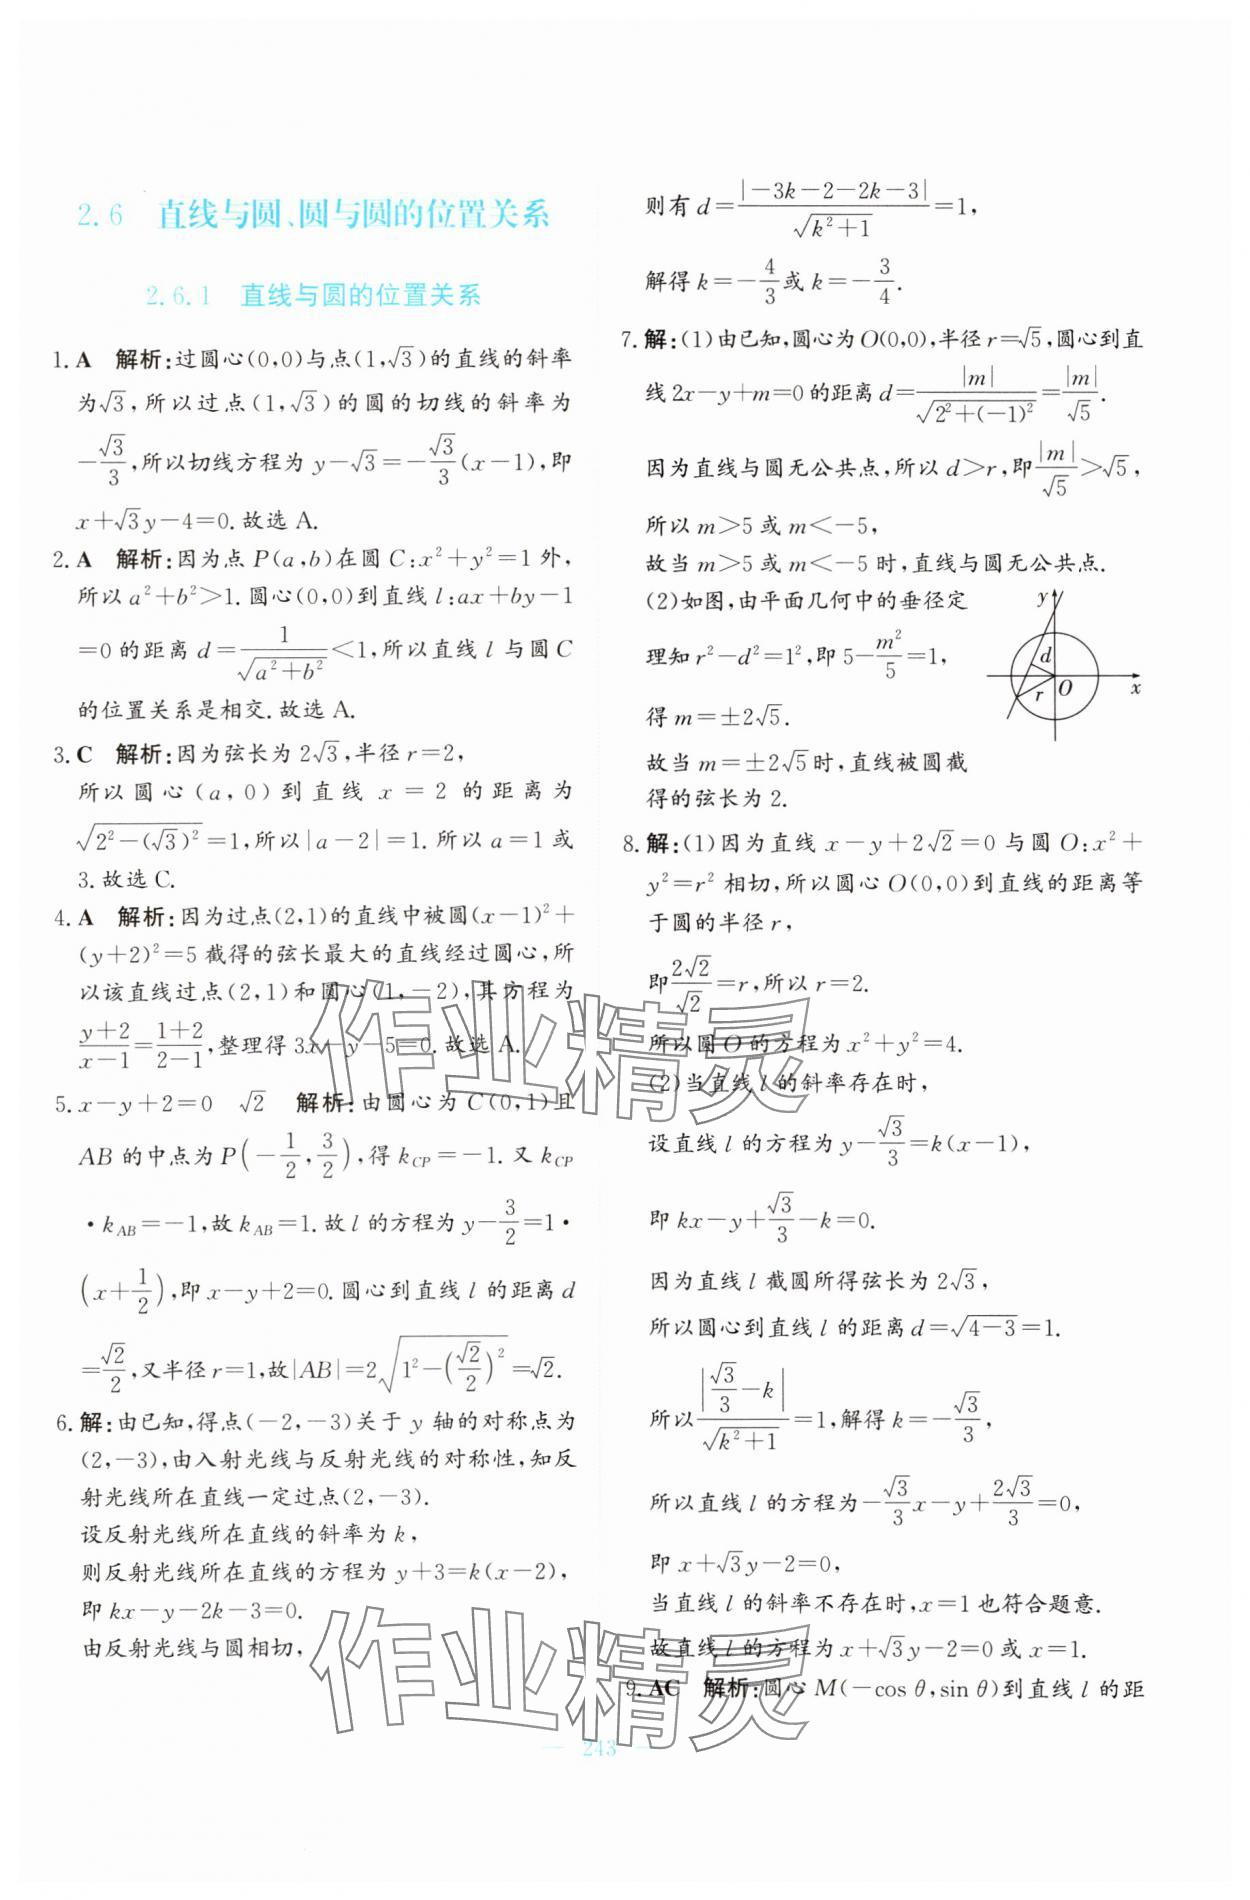 2.6 直线与圆、圆与圆的位置关系
2.6.1 直线与圆的位置关系
1. A 解析:过圆心(0,0)与点(1,√3)的直线的斜率
为√3,所以过点(1,√3)的圆的切线的斜率为
-√3/3,所以切线方程为 y-√3=-√3/3(x-1),即
x+√3y-4=0.故选A.
2. A 解析:因为点 P(a,b)在圆 C:x²+y²=1外,
所以a²+b²>1.圆心(0,0)到直线l:ax+by-1
=0的距离 d=1/√(a²+b²)<1,所以直线 l 与圆 C
的位置关系是相交.故选A.
3. C 解析:因为弦长为 2√3,半径 r=2,
所以圆心(a,0)到直线 x=2 的距离为
√(2²-(√3)²)=1,所以|a-2|=1.所以a=1或
3.故选C.
4. A 解析:因为过点(2,1)的直线中被圆(x-1)²+
(y+2)²=5截得的弦长最大的直线经过圆心,所
以该直线过点(2,1)和圆心(1,-2),其方程为
(y+2)/(x-1)=(1+2)/(2-1),整理得3x-y-5=0.故选A.
5. x-y+2=0 √2 解析:由圆心为 C(0,1)且
AB的中点为P(-1/2,3/2),得 k_CP=-1.又 k_CP
·k_AB=-1,故k_AB=1.故 l 的方程为 y-3/2=1·
(x+1/2),即 x-y+2=0.圆心到直线 l 的距离 d
=√2/2,又半径r=1,故|AB|=2√(1²-(√2/2)²)=√2.
6. 解:由已知,得点(-2,-3)关于 y 轴的对称点为
(2,-3),由入射光线与反射光线的对称性,知反
射光线所在直线一定过点(2,-3).
设反射光线所在直线的斜率为k,
则反射光线所在直线的方程为 y+3=k(x-2),
即 kx-y-2k-3=0.
由反射光线与圆相切,
则有 d=|-3k-2-2k-3|/√(k²+1)=1,
解得 k=-4/3或 k=-3/4.
7. 解:(1)由已知,圆心为O(0,0),半径r=√5,圆心到直
线2x-y+m=0的距离 d=|m|/√(2²+(-1)²)=|m|/√5.
因为直线与圆无公共点,所以 d>r,即|m|/√5>√5,
所以 m>5或 m<-5,
故当 m>5或 m<-5时,直线与圆无公共点.
(2)如图,由平面几何中的垂径定
理知 r²-d²=1²,即 5-m²/5=1,
得 m=±2√5.
故当 m=±2√5时,直线被圆截
得的弦长为2.
y
d
r
O
x
8. 解:(1)因为直线 x-y+2√2=0 与圆 O:x²+
y²=r² 相切,所以圆心O(0,0)到直线的距离等
于圆的半径 r,
即2√2/√2=r,所以 r=2.
所以圆O的方程为 x²+y²=4.
(2)当直线 l 的斜率存在时,
设直线 l 的方程为 y-√3/3=k(x-1),
即 kx-y+√3/3-k=0.
因为直线 l 截圆所得弦长为 2√3,
所以圆心到直线 l 的距离 d=√(4-3)=1.
所以|√3/3-k|/√(k²+1)=1,解得 k=-√3/3,
所以直线 l 的方程为-√3/3x-y+2√3/3=0,
即 x+√3y-2=0,
当直线 l 的斜率不存在时,x=1也符合题意.
故直线 l 的方程为 x+√3y-2=0或 x=1.
9. AC 解析:圆心 M(-cos θ,sin θ)到直线 l 的距
— 243 —
作业精灵
作业精灵